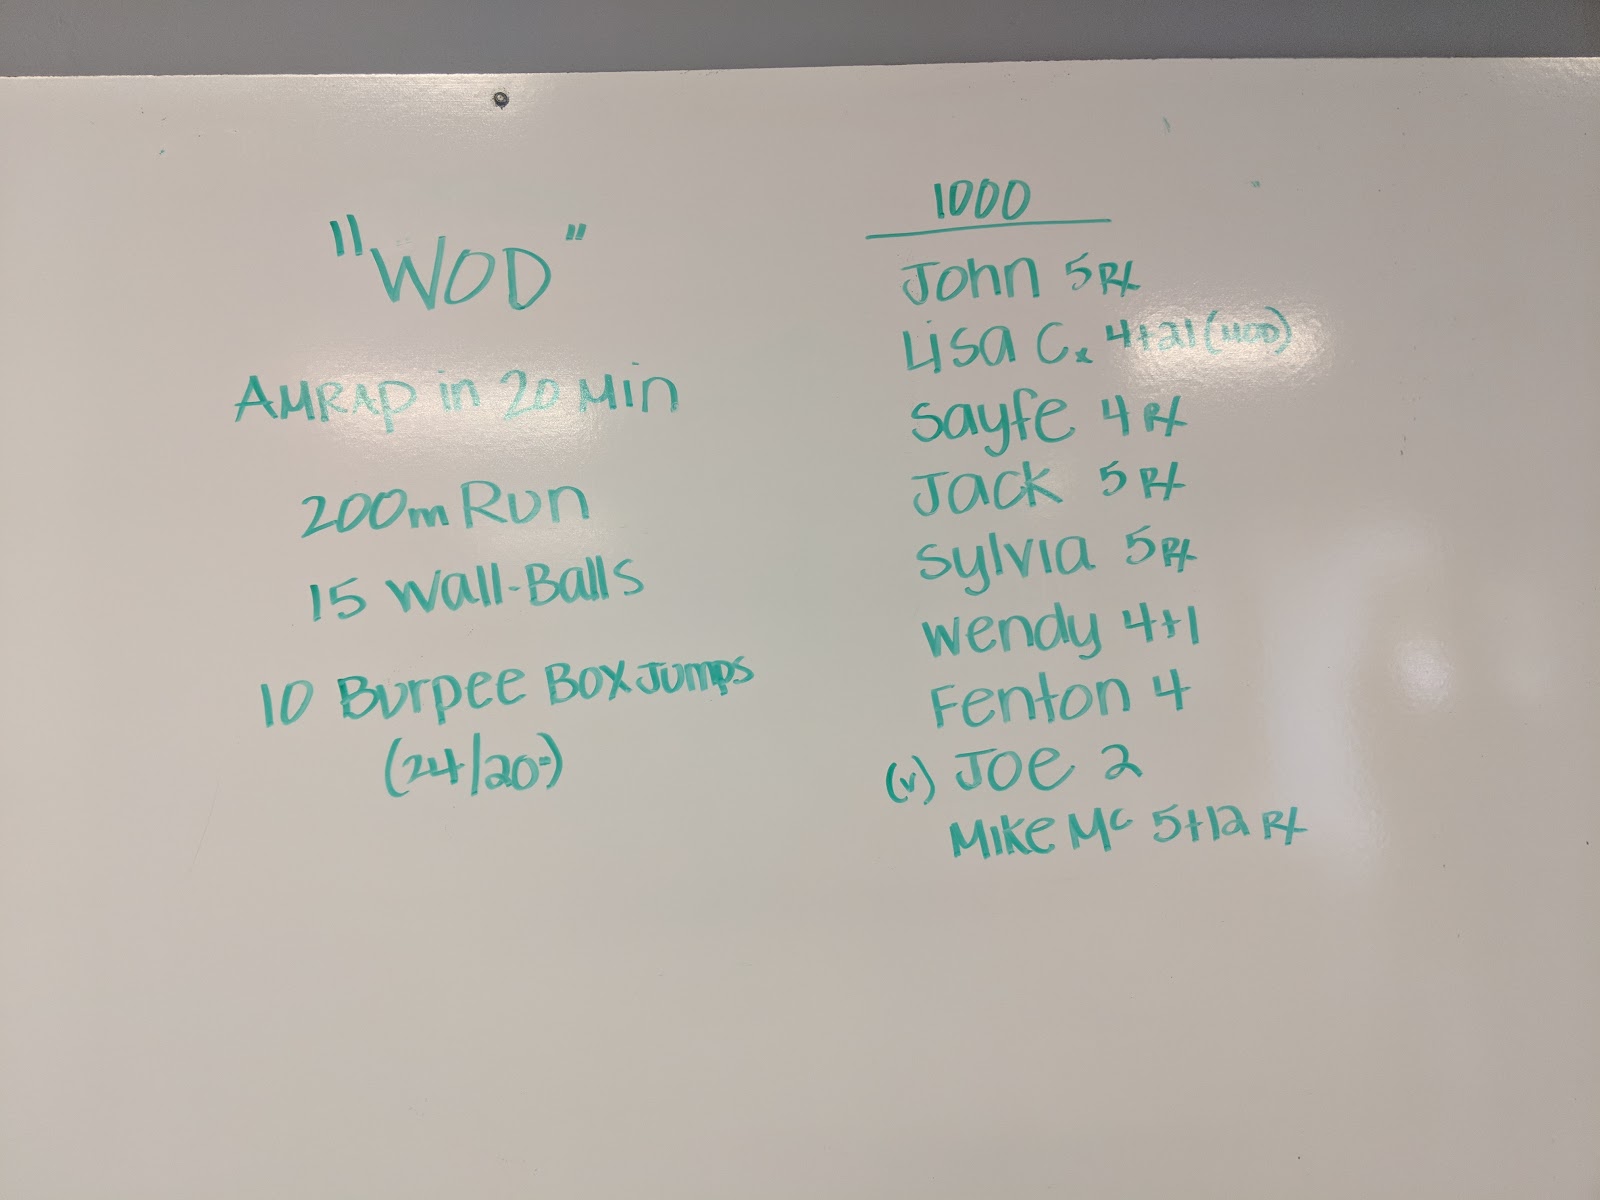 "WOD"
AMRAP in 20 Min
200m Run
15 Wall-Balls
10 Burpee Box Jumps
(24/20")
1000
John 5 Rx
Lisa C. 4+21 (MOD)
Sayfe 4 Rx
Jack 5 Rx
Sylvia 5 Rx
Wendy 4+1
Fenton 4
(v) Joe 2
Mike Mc 5+12 Rx